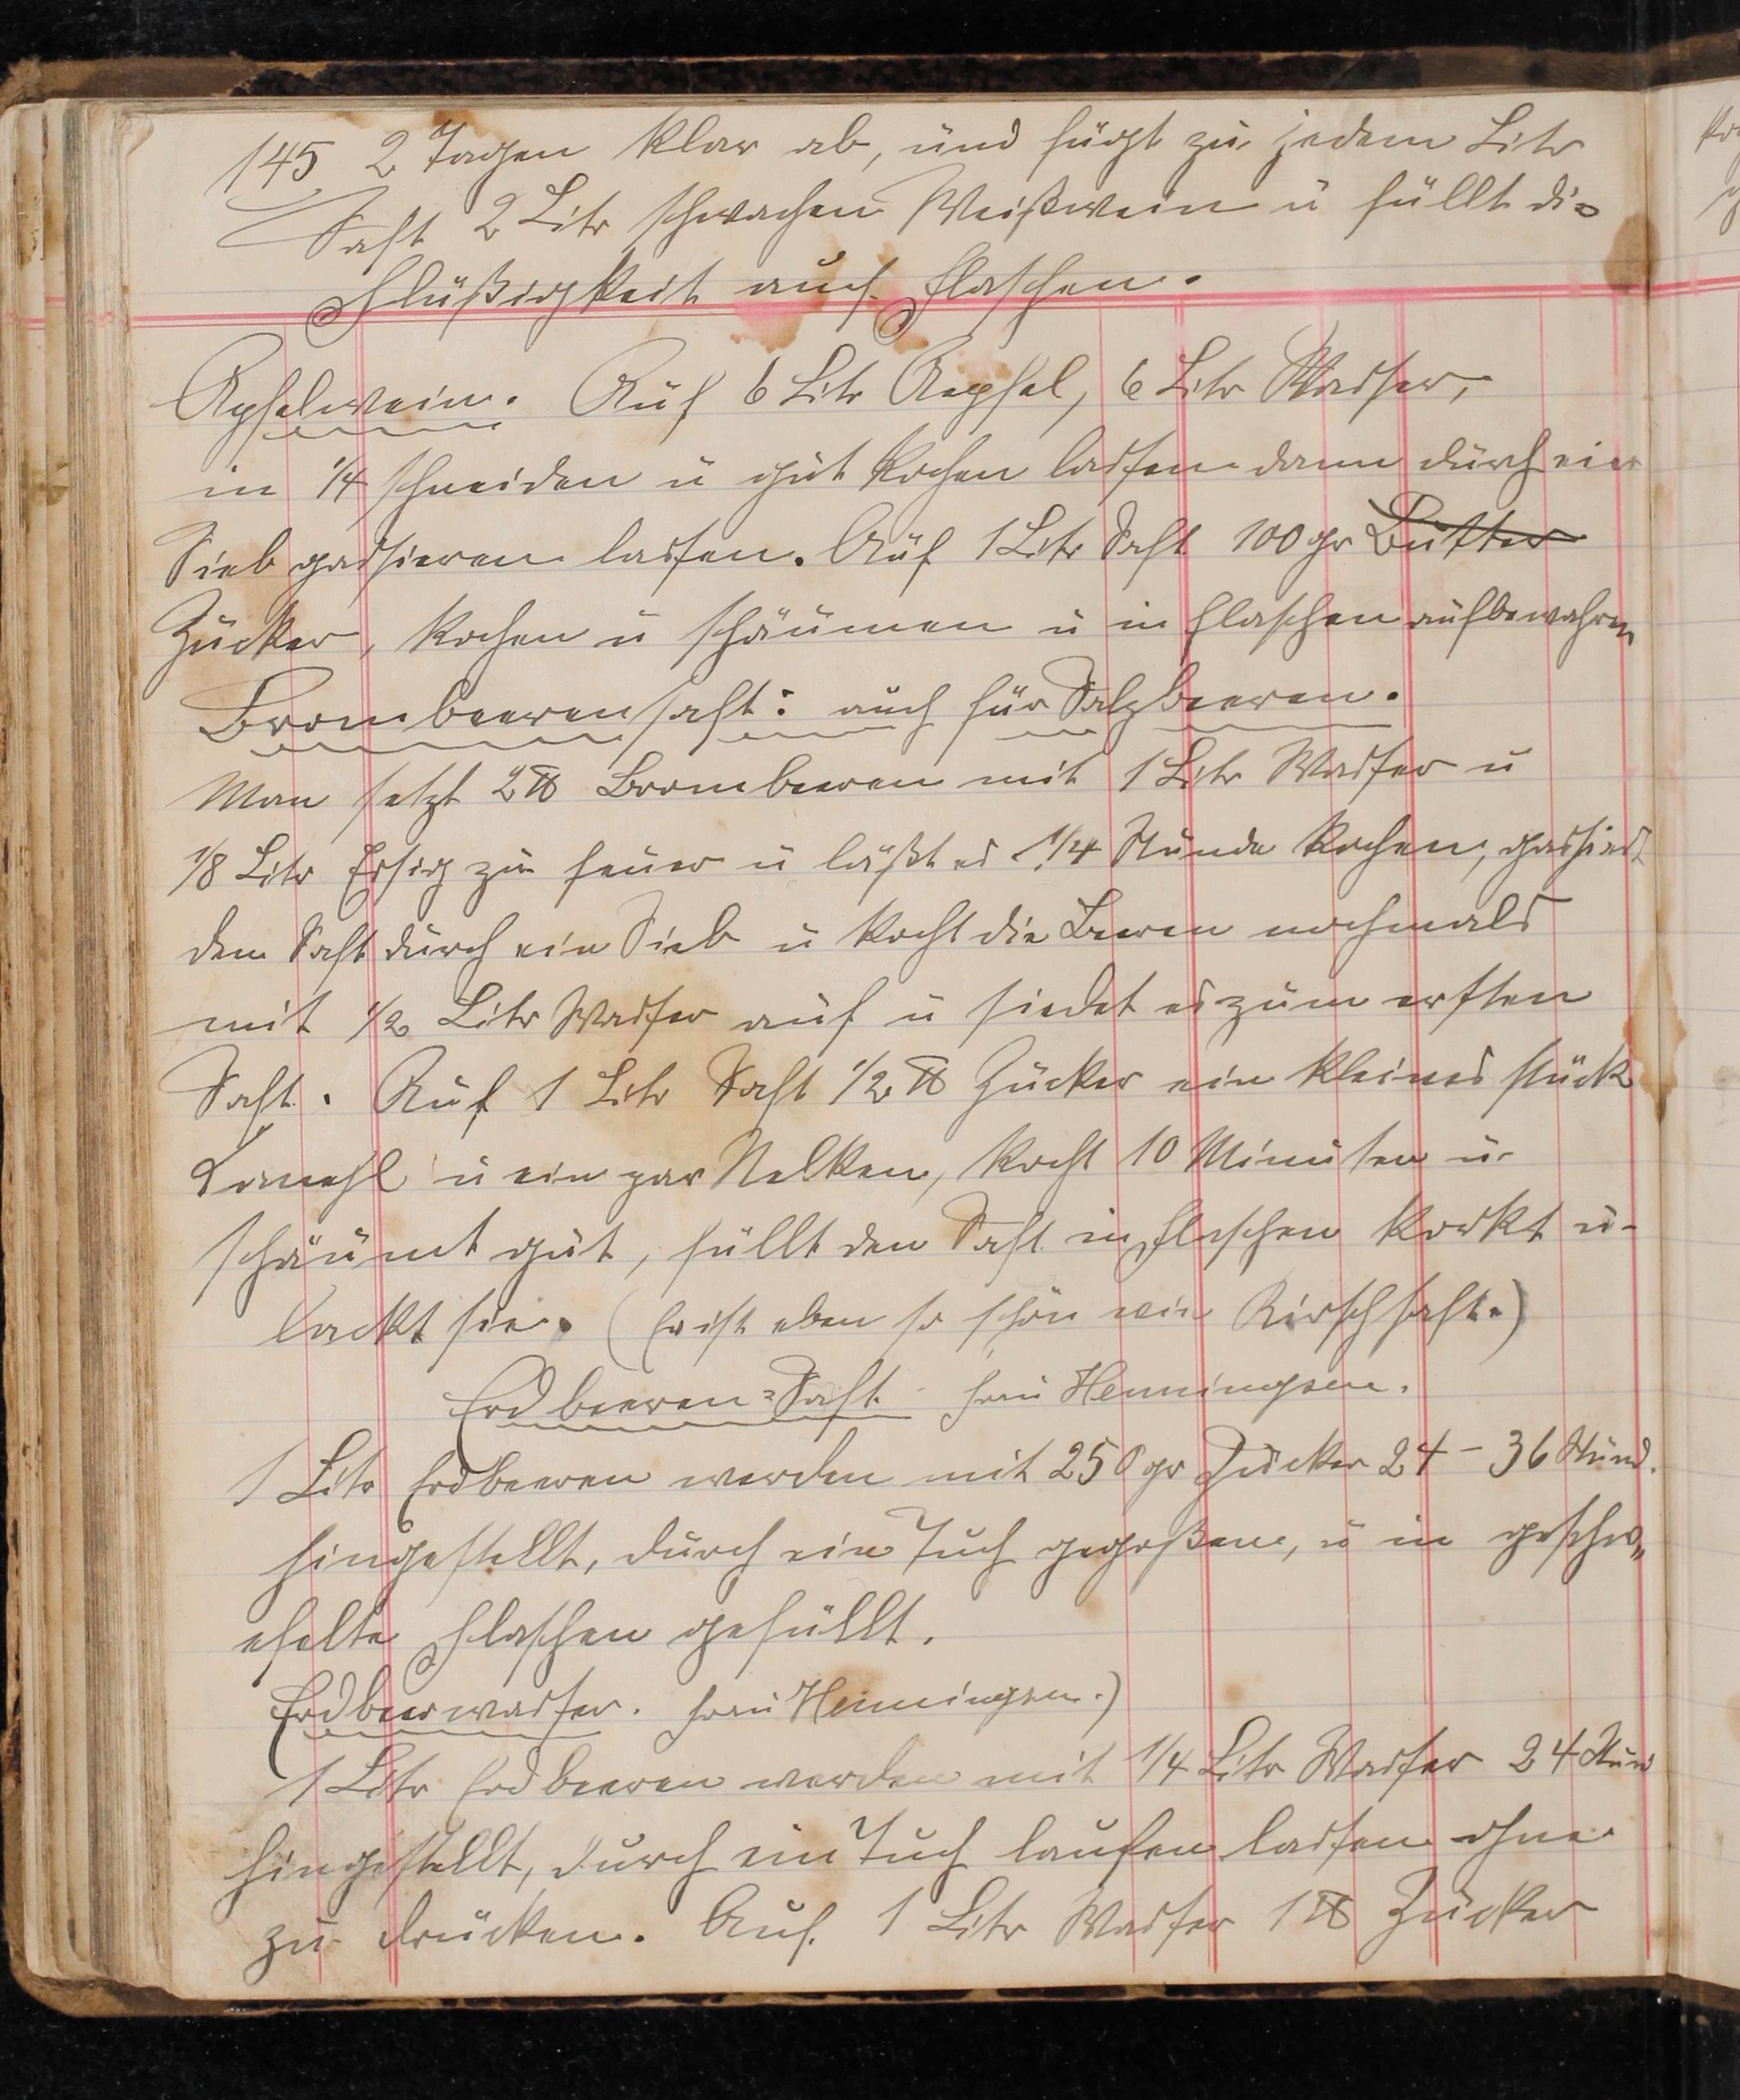 145 2 Tagen klar ab, und fügt zu jedem Litr
Saft 2 Litr schwachen Weißwein u füllt die
Flüßigkeit auf Flaschen.
Apfelwein. Auf 6 Litr Aepfel, 6 Litr Wasser,
in 1/4 schneiden u gut kochen lassen dann durch ein
Sieb passieren lassen. Auf 1 Litr Saft 100 gr Butter
Zucker, kochen u schäumen u in Flaschen aufbewahren
Brombeerensaft: auch für Salzbeeren.
Man setzt 2 ℔ Brombeeren mit 1 Litr Wasser u
1/8 Litr Essig zu feuer u läßt es 1/4 Stunde kochen, passiert
den Saft durch ein Sieb u kocht die Beeren nochmals
mit 1/2 Litr Wasser auf u siedet es zum ersten
Saft. Auf 1 Litr Saft 1/2 ℔ Zucker ein kleines stück
u ein par Nelken, kocht 10 Minuten u
schäumt gut, füllt den Saft in Flaschen korkt u
lackt sie. (Er ist eben so schön wie Kirschsaft.)
Erdbeeren=Saft frau Henningsen.
1 Litr Erdbeeren werden mit 250 gr Zucker 24 – 36 Stund.
hingestellt, durch ein Tuch gegoßen, u in geschw„
efelte Flaschen gefüllt.
Erdbeerwasser. frau Henningsen.)
1 Litr Erdbeeren werden mit 1/4 Litr Wasser 24 Stund
hingestellt, durch ein Tuch laufen lassen ohne
zu drücken. Auf 1 Litr Wasser 1 ℔ Zucker